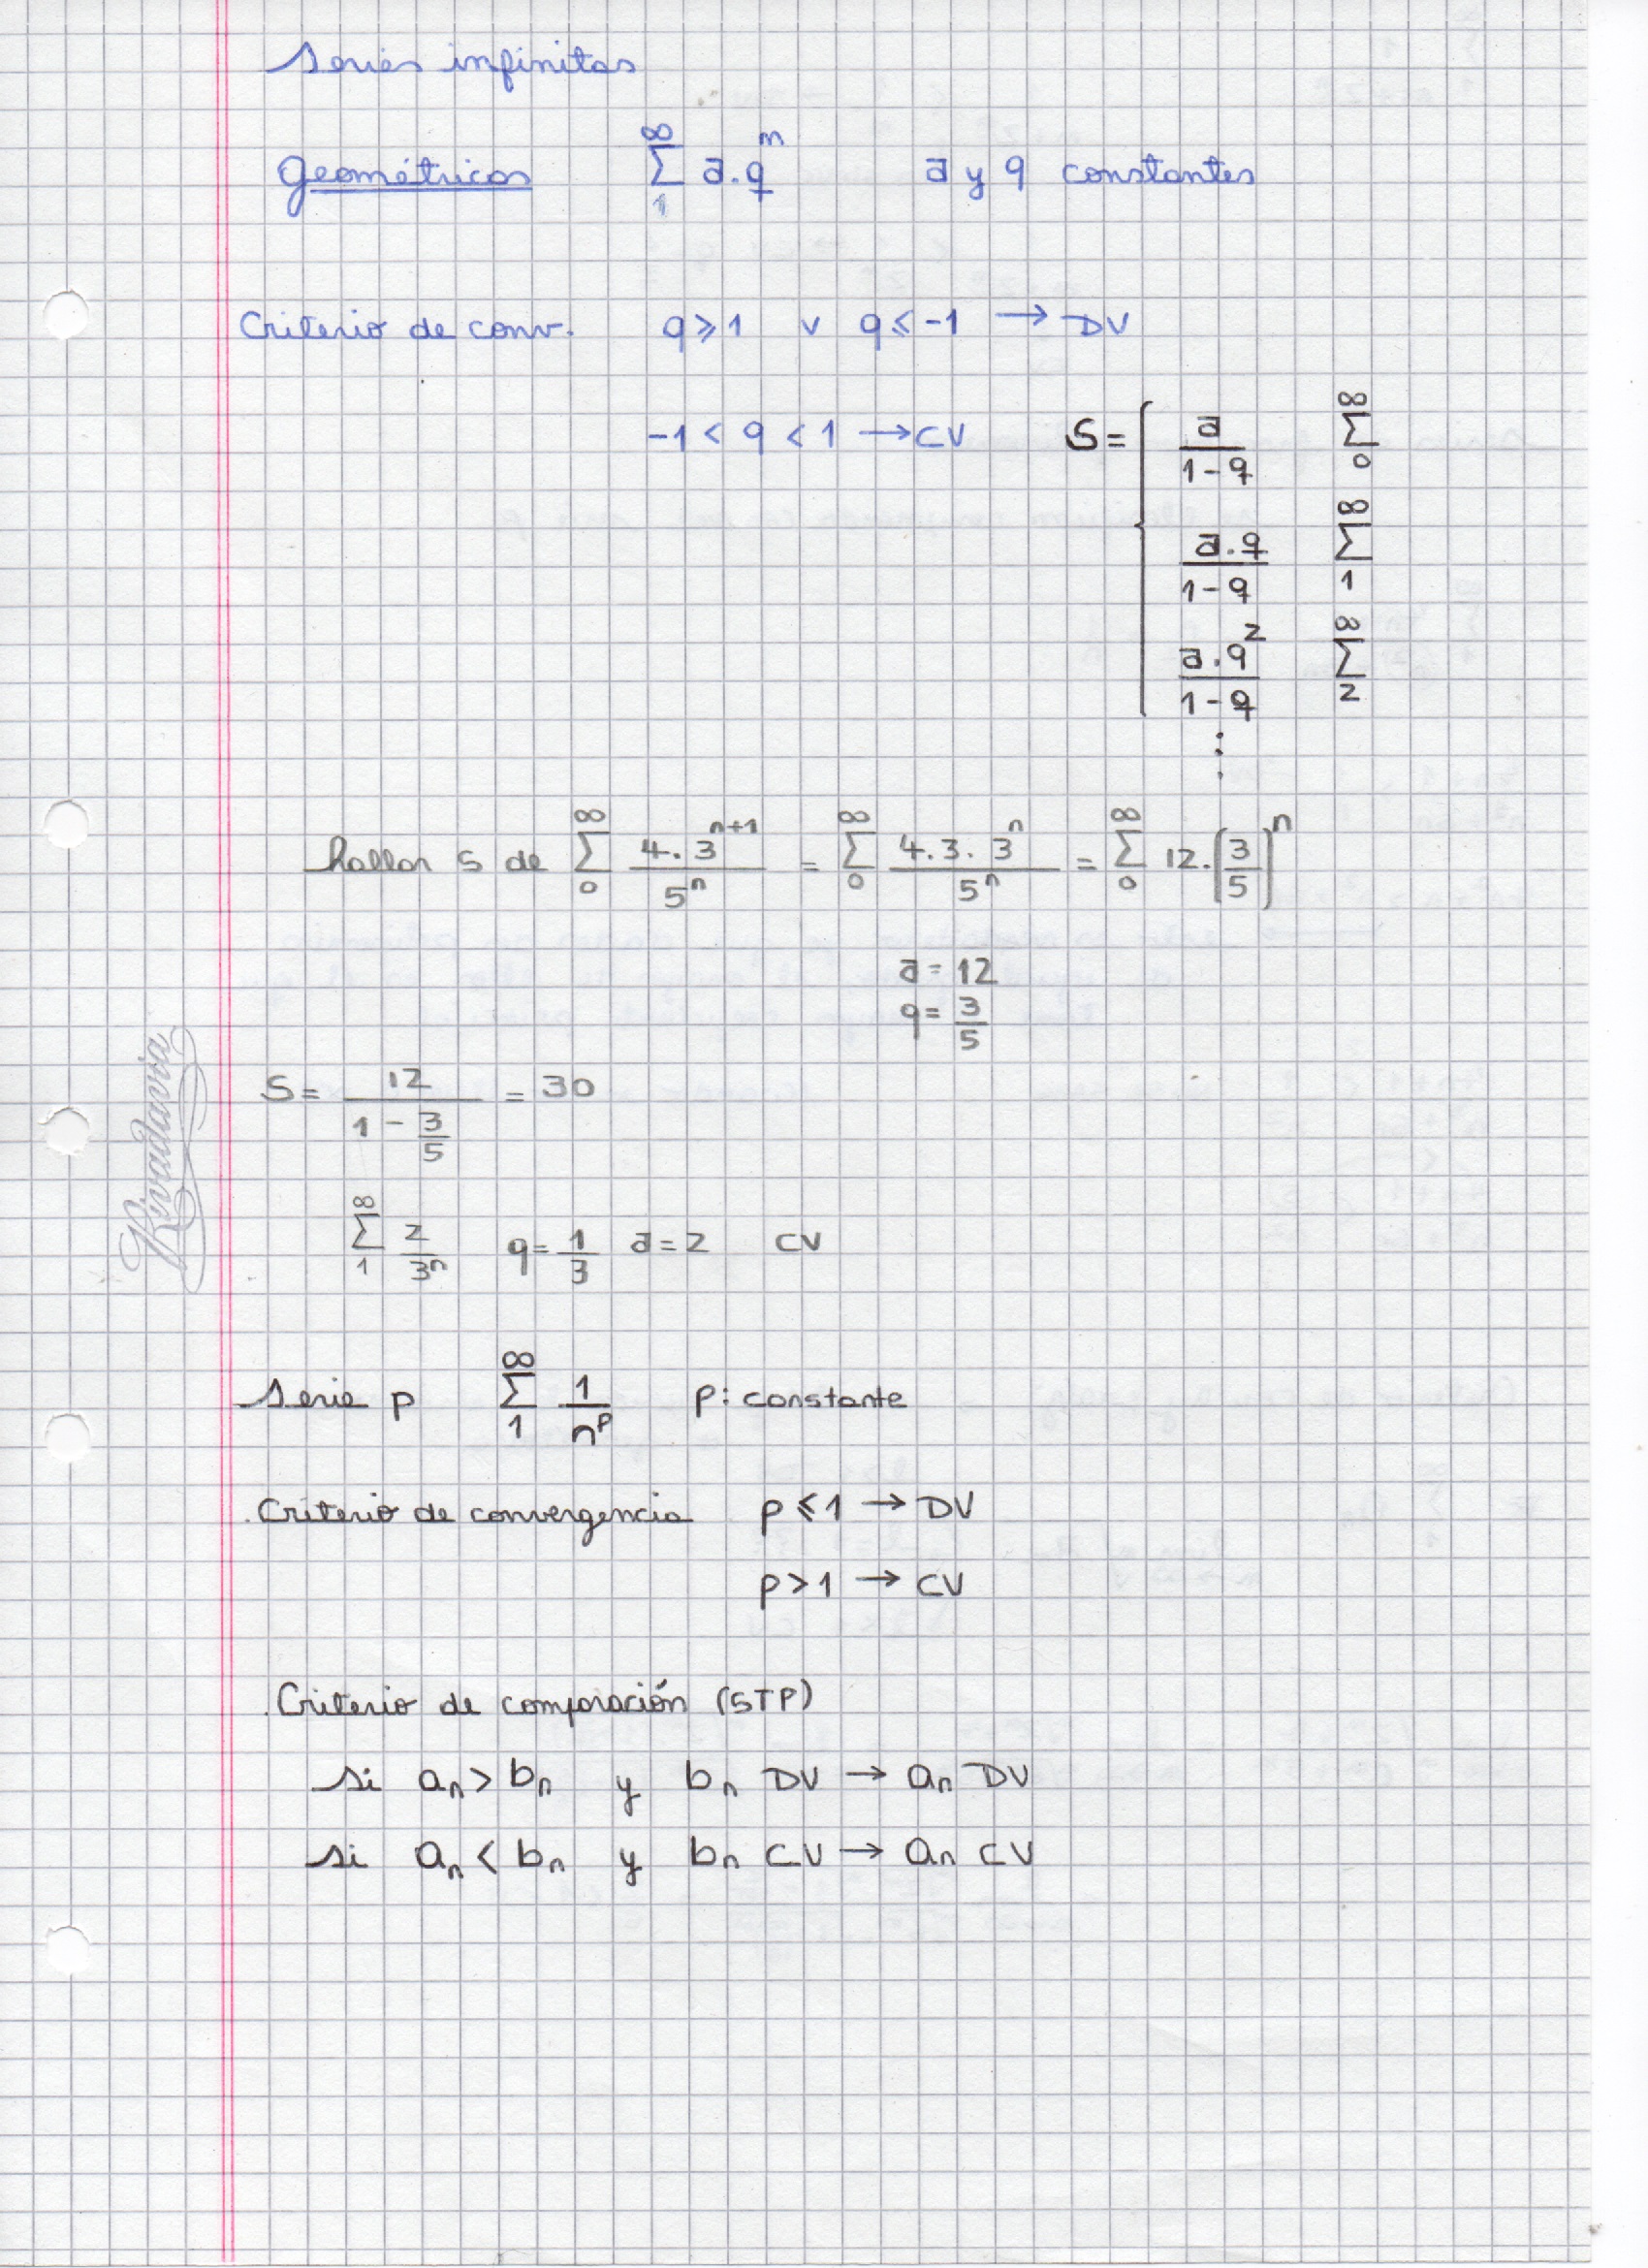 Series infinitas
Geométricas ∑_1^∞ a.q^n a y q constantes
Criterio de conv. q ⩾ 1 v q ⩽ -1 → DV
-1 < q < 1 → CV S = { a/(1-q) ∑_0^∞
a.q/(1-q) ∑_1^∞
a.q^2/(1-q) ∑_2^∞
⋮
hallar S de ∑_0^∞ 4.3^(n+1)/5^n = ∑_0^∞ 4.3.3^n/5^n = ∑_0^∞ 12.(3/5)^n
a = 12
q = 3/5
S = 12/(1 - 3/5) = 30
∑_1^∞ 2/3^n q = 1/3 a = 2 CV
Serie p ∑_1^∞ 1/n^p p: constante
Criterio de convergencia p ⩽ 1 → DV
p > 1 → CV
Criterio de comparación (STP)
si a_n > b_n y b_n DV → a_n DV
si a_n < b_n y b_n CV → a_n CV
Rivadavia